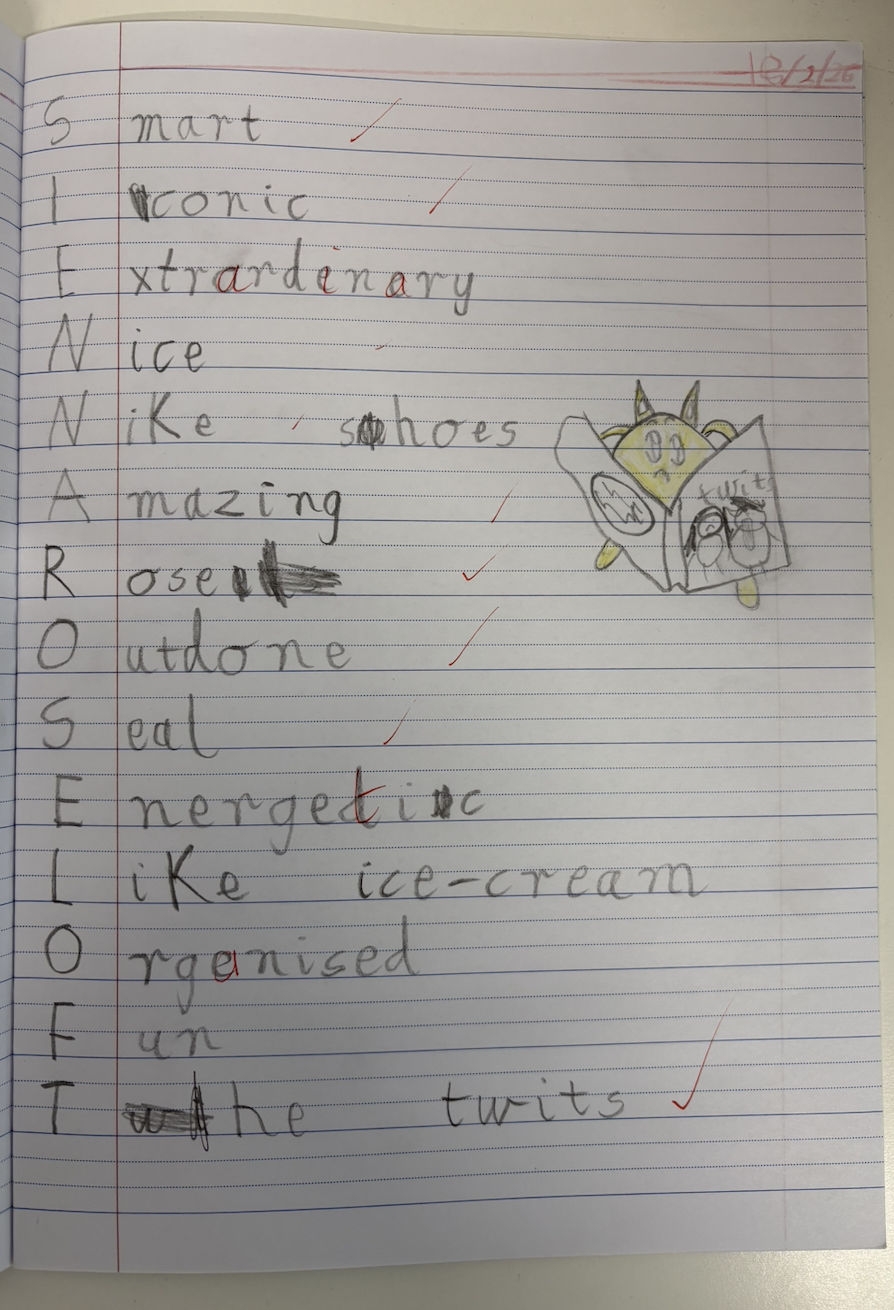 18/2/26
S mart
I conic
E xtrardinary
N ice
N iKe shoes
A mazing
R ose
O utdone
S eal
E nergetic
L iKe ice-cream
O rganised
F un
T he twits
twits